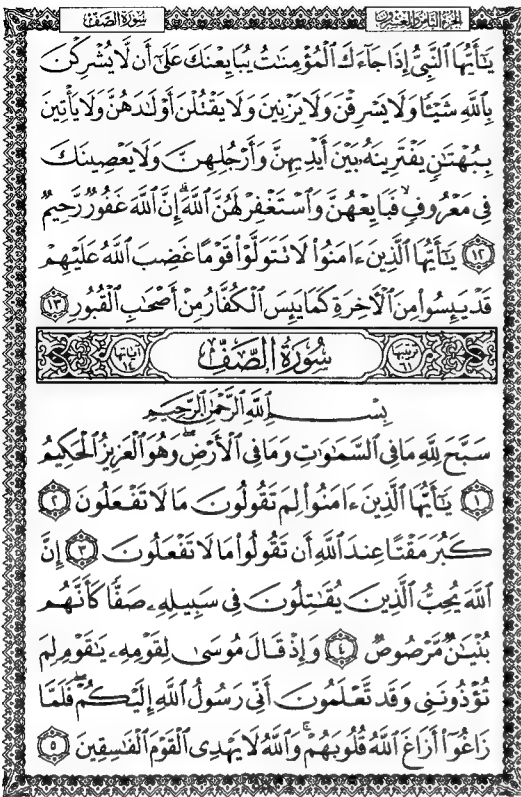 الجزء الثامن والعشرون
سورة الصف
يَٰٓأَيُّهَا ٱلنَّبِيُّ إِذَا جَآءَكَ ٱلْمُؤْمِنَٰتُ يُبَايِعْنَكَ عَلَىٰٓ أَن لَّا يُشْرِكْنَ
بِٱللَّهِ شَيْـًٔا وَلَا يَسْرِقْنَ وَلَا يَزْنِينَ وَلَا يَقْتُلْنَ أَوْلَٰدَهُنَّ وَلَا يَأْتِينَ
بِبُهْتَٰنٍ يَفْتَرِينَهُۥ بَيْنَ أَيْدِيهِنَّ وَأَرْجُلِهِنَّ وَلَا يَعْصِينَكَ
فِى مَعْرُوفٍ ۙ فَبَايِعْهُنَّ وَٱسْتَغْفِرْ لَهُنَّ ٱللَّهَ ۖ إِنَّ ٱللَّهَ غَفُورٌ رَّحِيمٌ
١٢ يَٰٓأَيُّهَا ٱلَّذِينَ ءَامَنُوا۟ لَا تَتَوَلَّوْا۟ قَوْمًا غَضِبَ ٱللَّهُ عَلَيْهِمْ
قَدْ يَئِسُوا۟ مِنَ ٱلْءَاخِرَةِ كَمَا يَئِسَ ٱلْكُفَّارُ مِنْ أَصْحَٰبِ ٱلْقُبُورِ ١٣
ترتيبها ٦١
سُورَةُ الصَّفِّ
آياتها ١٤
بِسْمِ ٱللَّهِ ٱلرَّحْمَٰنِ ٱلرَّحِيمِ
سَبَّحَ لِلَّهِ مَا فِى ٱلسَّمَٰوَٰتِ وَمَا فِى ٱلْأَرْضِ ۖ وَهُوَ ٱلْعَزِيزُ ٱلْحَكِيمُ
١ يَٰٓأَيُّهَا ٱلَّذِينَ ءَامَنُوا۟ لِمَ تَقُولُونَ مَا لَا تَفْعَلُونَ ٢
كَبُرَ مَقْتًا عِندَ ٱللَّهِ أَن تَقُولُوا۟ مَا لَا تَفْعَلُونَ ٣ إِنَّ
ٱللَّهَ يُحِبُّ ٱلَّذِينَ يُقَٰتِلُونَ فِى سَبِيلِهِۦ صَفًّا كَأَنَّهُم
بُنْيَٰنٌ مَّرْصُوصٌ ٤ وَإِذْ قَالَ مُوسَىٰ لِقَوْمِهِۦ يَٰقَوْمِ لِمَ
تُؤْذُونَنِى وَقَد تَّعْلَمُونَ أَنِّى رَسُولُ ٱللَّهِ إِلَيْكُمْ ۖ فَلَمَّا
زَاغُوٓا۟ أَزَاغَ ٱللَّهُ قُلُوبَهُمْ ۚ وَٱللَّهُ لَا يَهْدِى ٱلْقَوْمَ ٱلْفَٰسِقِينَ ٥